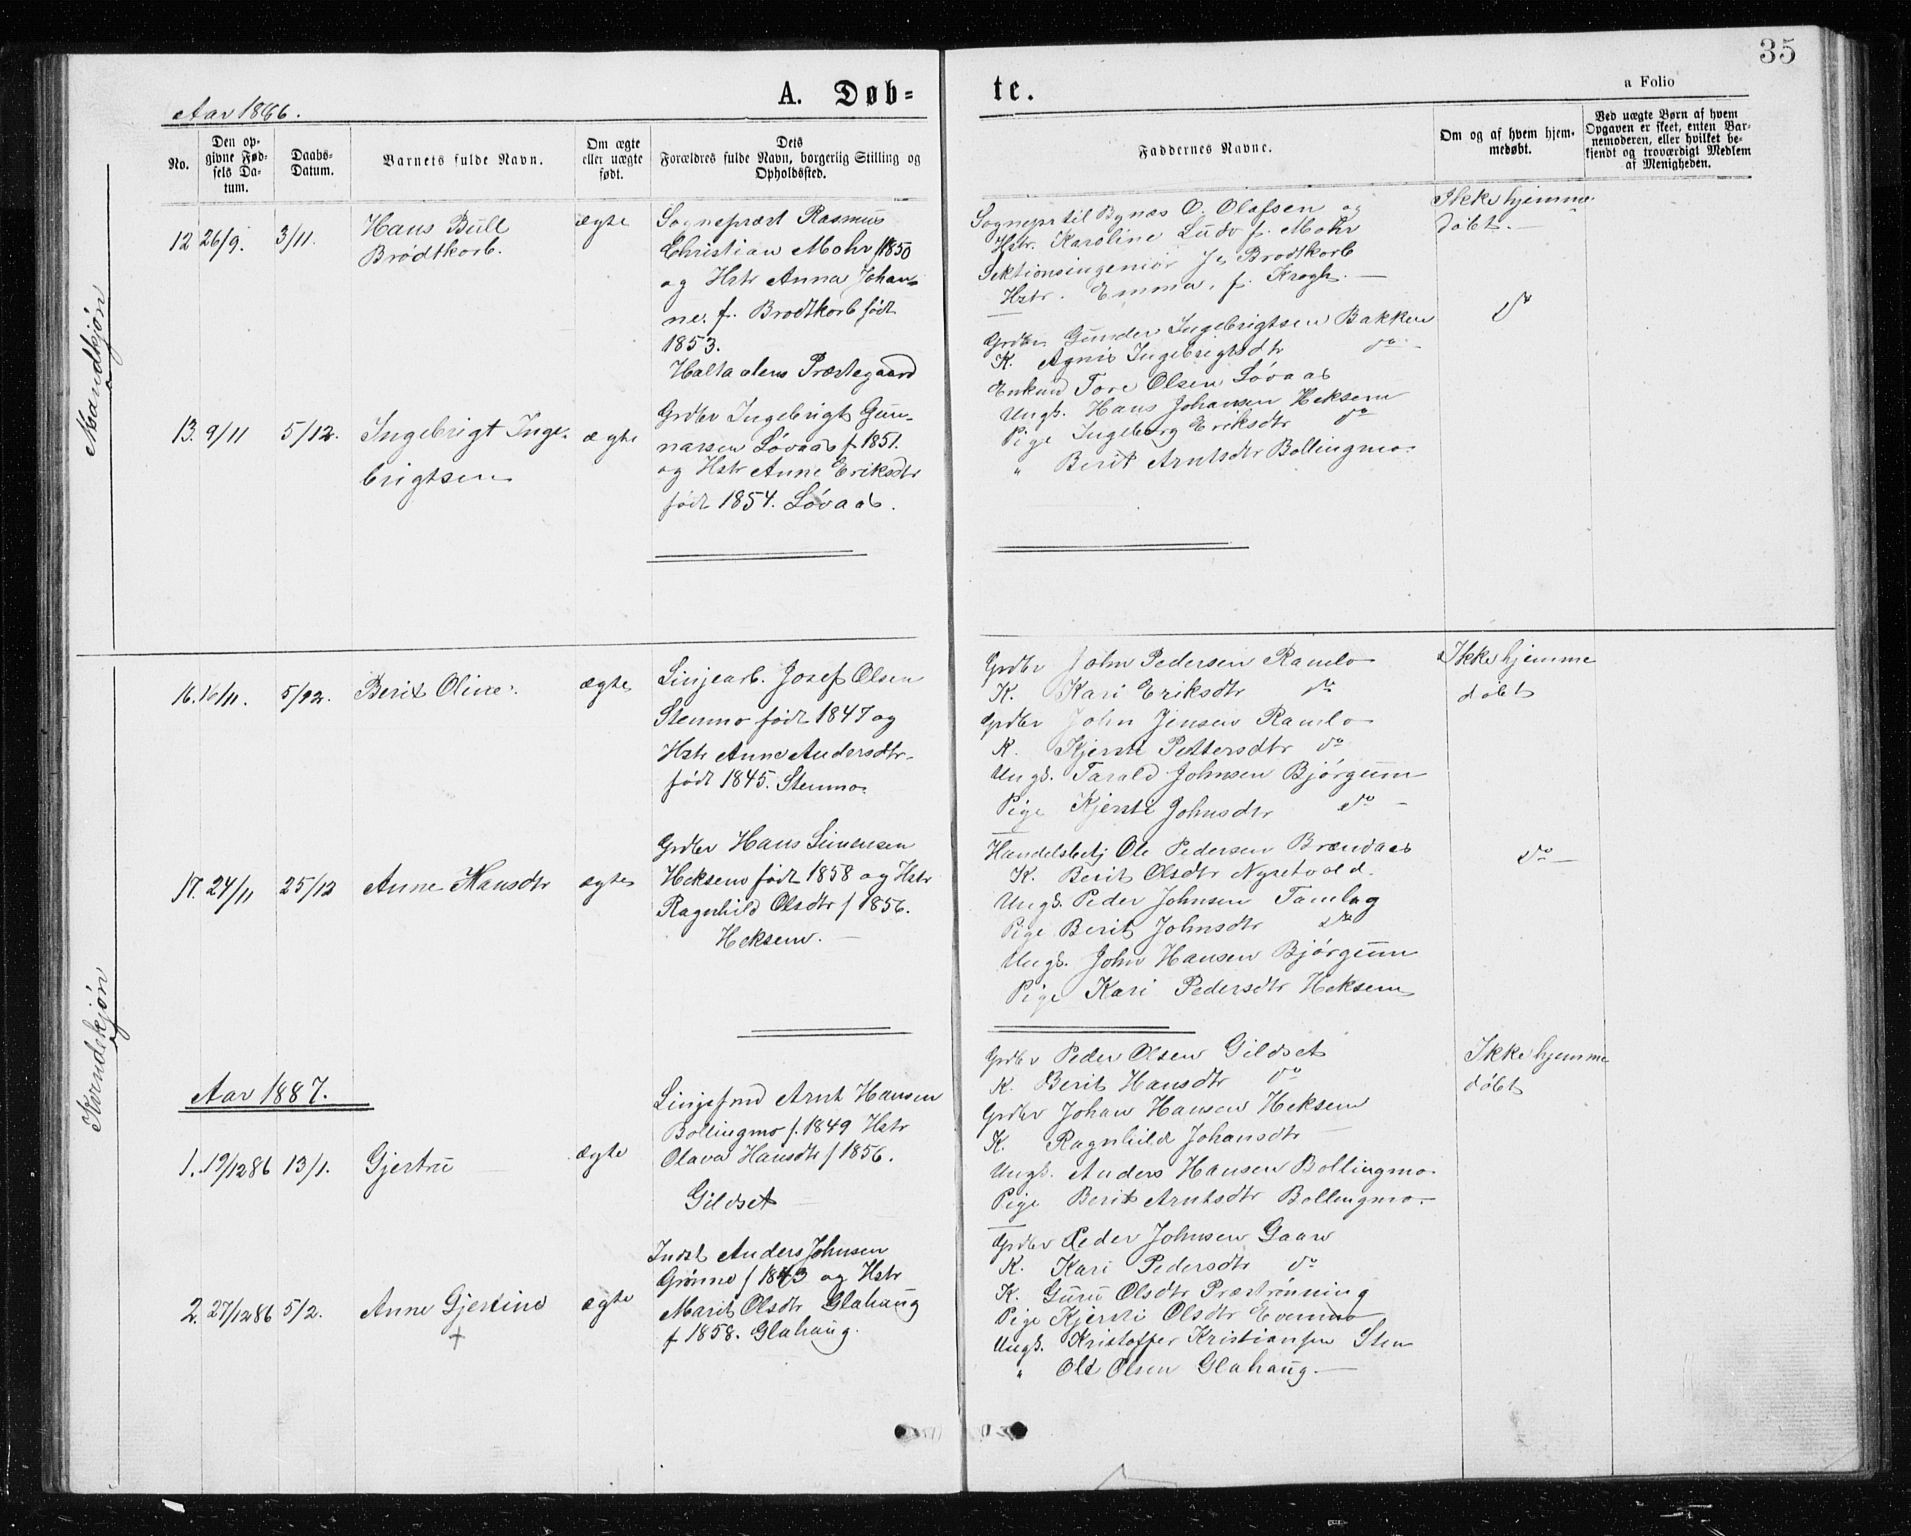 35
A. Døb-
te.
a Folio
Aar 1866.
No.
Den op-
givne Fød-
sels Da-
tum.
Daabs-
Datum.
Barnets fulde Navn.
Om ægte
eller uægte
født.
Dets
Forældres fulde Navn, borgerlig Stilling og
Opholdssted.
Faddernes Navne.
Om og af hvem hjem-
medøbt.
Ved uægte Børn af hvem
Opgaven er skeet, enten Bar-
nemoderen, eller hvilket be-
kjendt og troværdigt Medlem
af Menigheden.
Mandkjøn
12 26/9. 3/11. Hans Bull
Brodtkorb.
ægte
Sognepræst Rasmus
Christian Mohr f 1850
og Hstr Anna Johan-
ne. f. Brodtkorb født
1853.
Haltaalens Præstegaard
Sognepr til Bynæs O. Olafsen og
Hstr. Karoline Ludv f. Mohr
Sektionsingeniør J. Brodtkorb
Hstr. Emma, f. Krogh. —
Ikke hjemme
døbt. —
13. 9/11 5/12. Ingebrigt Inge-
brigtsen
ægte
Grdbr Ingebrigt Gun-
narsen Løvaas f 1851.
og Hstr Anne Eriksdtr
født 1854. Løvaas.
Grdbr Gunder Ingebrigtsen Bakken
K. Agnis Ingebrigtsdtr do
Enkmd Tore Olsen Løvaas
Ungk. Hans Johansen Heksem
Pige Ingeborg Eriksdtr do
" Berit Arntsdtr Bollingmo
do
Kvindekjøn
16. 16/11. 5/12. Berit Oline.
ægte
Linjearb. Josef Olsen
Stenmo født 1847 og
Hstr Anne Andersdtr
født 1845. Stenmo
Grdbr John Pedersen Ramlo
K. Kari Eriksdtr do
Grdbr John Jensen Ramlo
K. Kjersti Pettersdtr do
Ungk. Tarald Johnsen Bjørgum
Pige Kjersti Johnsdtr do —
Ikke hjemme
døbt
17. 24/11 25/12 Anne Hansdtr
ægte
Grdbr Hans Simensen
Heksem født 1858 og Hstr
Ragnhild Olsdtr f 1856.
Heksem. —
Handelsbetj Ole Pedersen Brændaas
K. Berit Olsdtr Nyretvold.
Ungk. Peder Johnsen Tamlag
Pige Berit Johnsdtr do
Ungk. John Hansen Bjørgum
Pige Kari Pedersdtr Heksem
do —
Aar 1887.
1. 19/12 86 13/1. Gjertru
ægte
Linjefmd Arnt Hansen
Bollingmo f. 1849 Hstr
Olava Hansdtr f 1856.
Gildset —
Grdbr Peder Olsen Gildset
K. Berit Hansdtr do
Grdbr Johan Hansen Heksem
K. Ragnhild Johansdtr —
Ungk. Anders Hansen Bollingmo
Pige Berit Arntsdtr Bollingmo —
Ikke hjemme
døbt
2. 27/12 86 5/2. Anne Gjertine
+
ægte
Indst Anders Johnsen
Grønmo f 1843 og Hstr
Marit Olsdtr Glahaug
f 1858. Glahaug.
Grdbr Peder Johnsen Gaare
K. Kari Pedersdtr do
K. Guru Olsdtr Præstrønning
Pige Kjersti Olsdtr Evenmo
Ungk. Kristoffer Kristiansen Sten
" Ole Olsen Glahaug. —